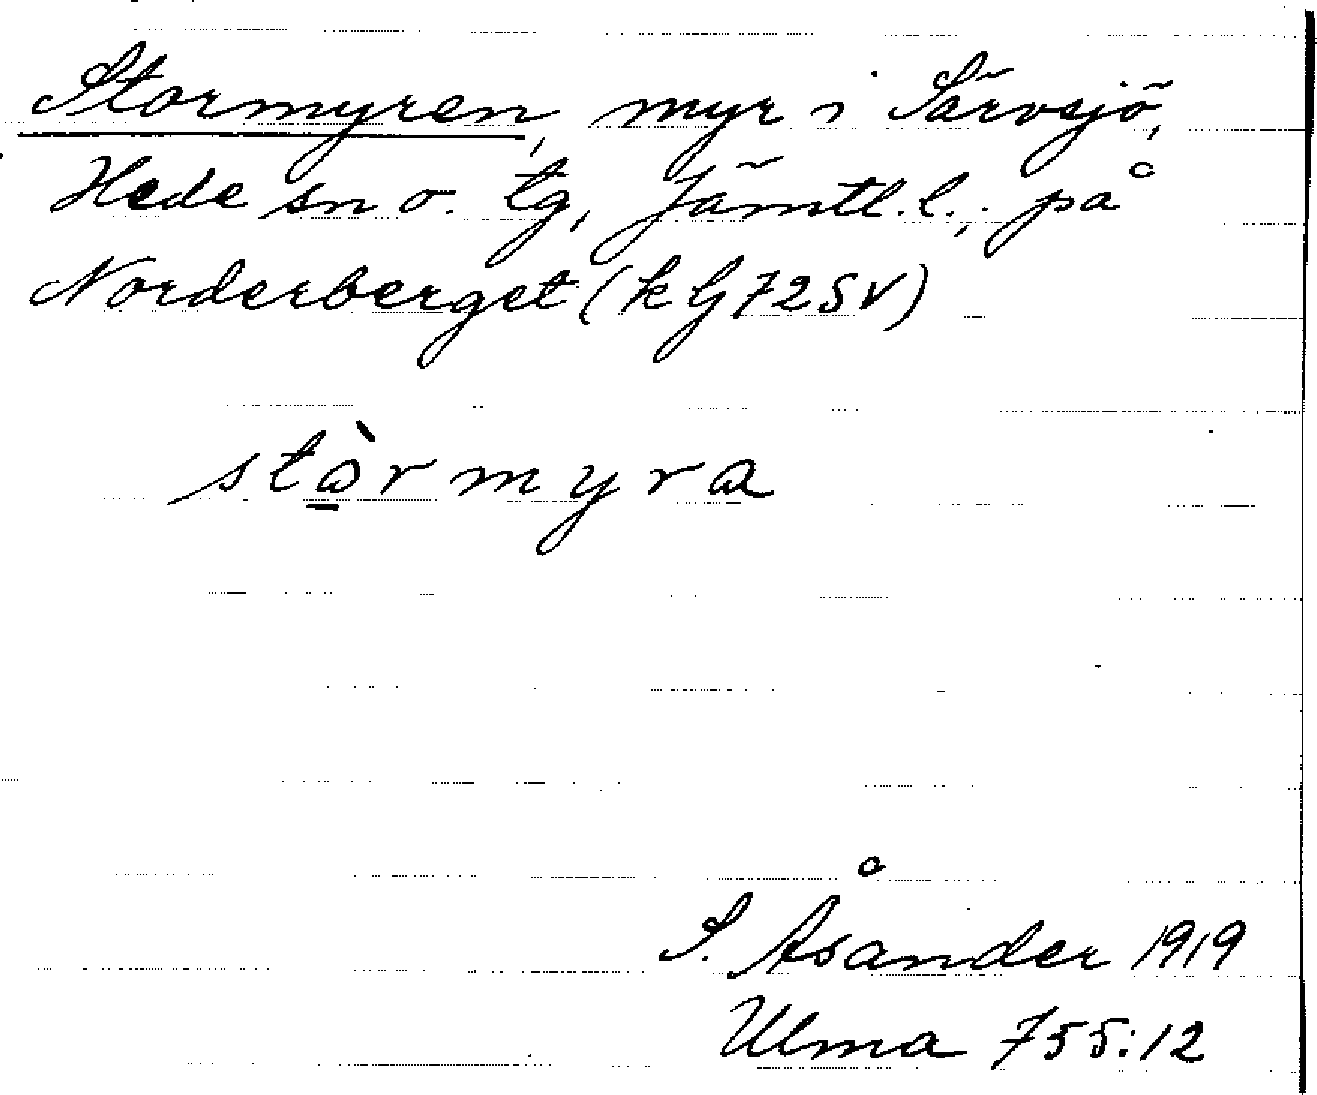 Stormyren, myr i Särvsjö,
Hede sn o. tg, Jämtl. l., på
Norderberget (k bj 72 SV)
stòrmyra
S. Åsander 1919
Ulma 755:12